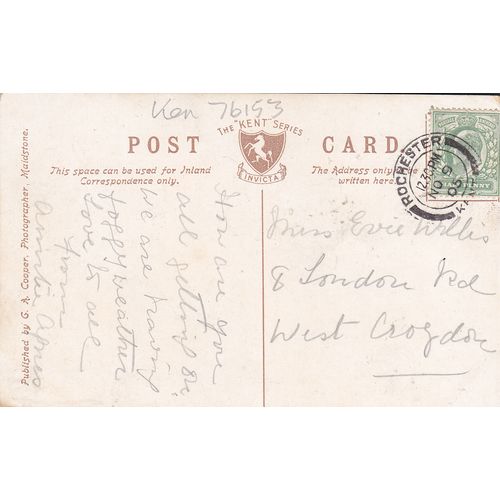 Ken 76153
THE "KENT" SERIES
POST CARD
INVICTA
This space can be used for Inland
Correspondence only.
The Address only to be
written here.
Published by G. A. Cooper, Photographer, Maidstone.
ROCHESTER
12.30PM
NO 9
05
KENT
PENNY
How are you
all getting on
we are having
foggy weather
Love to all
from
Auntie Agnes
Miss Evie Willis
8 London Rd
West Croydon